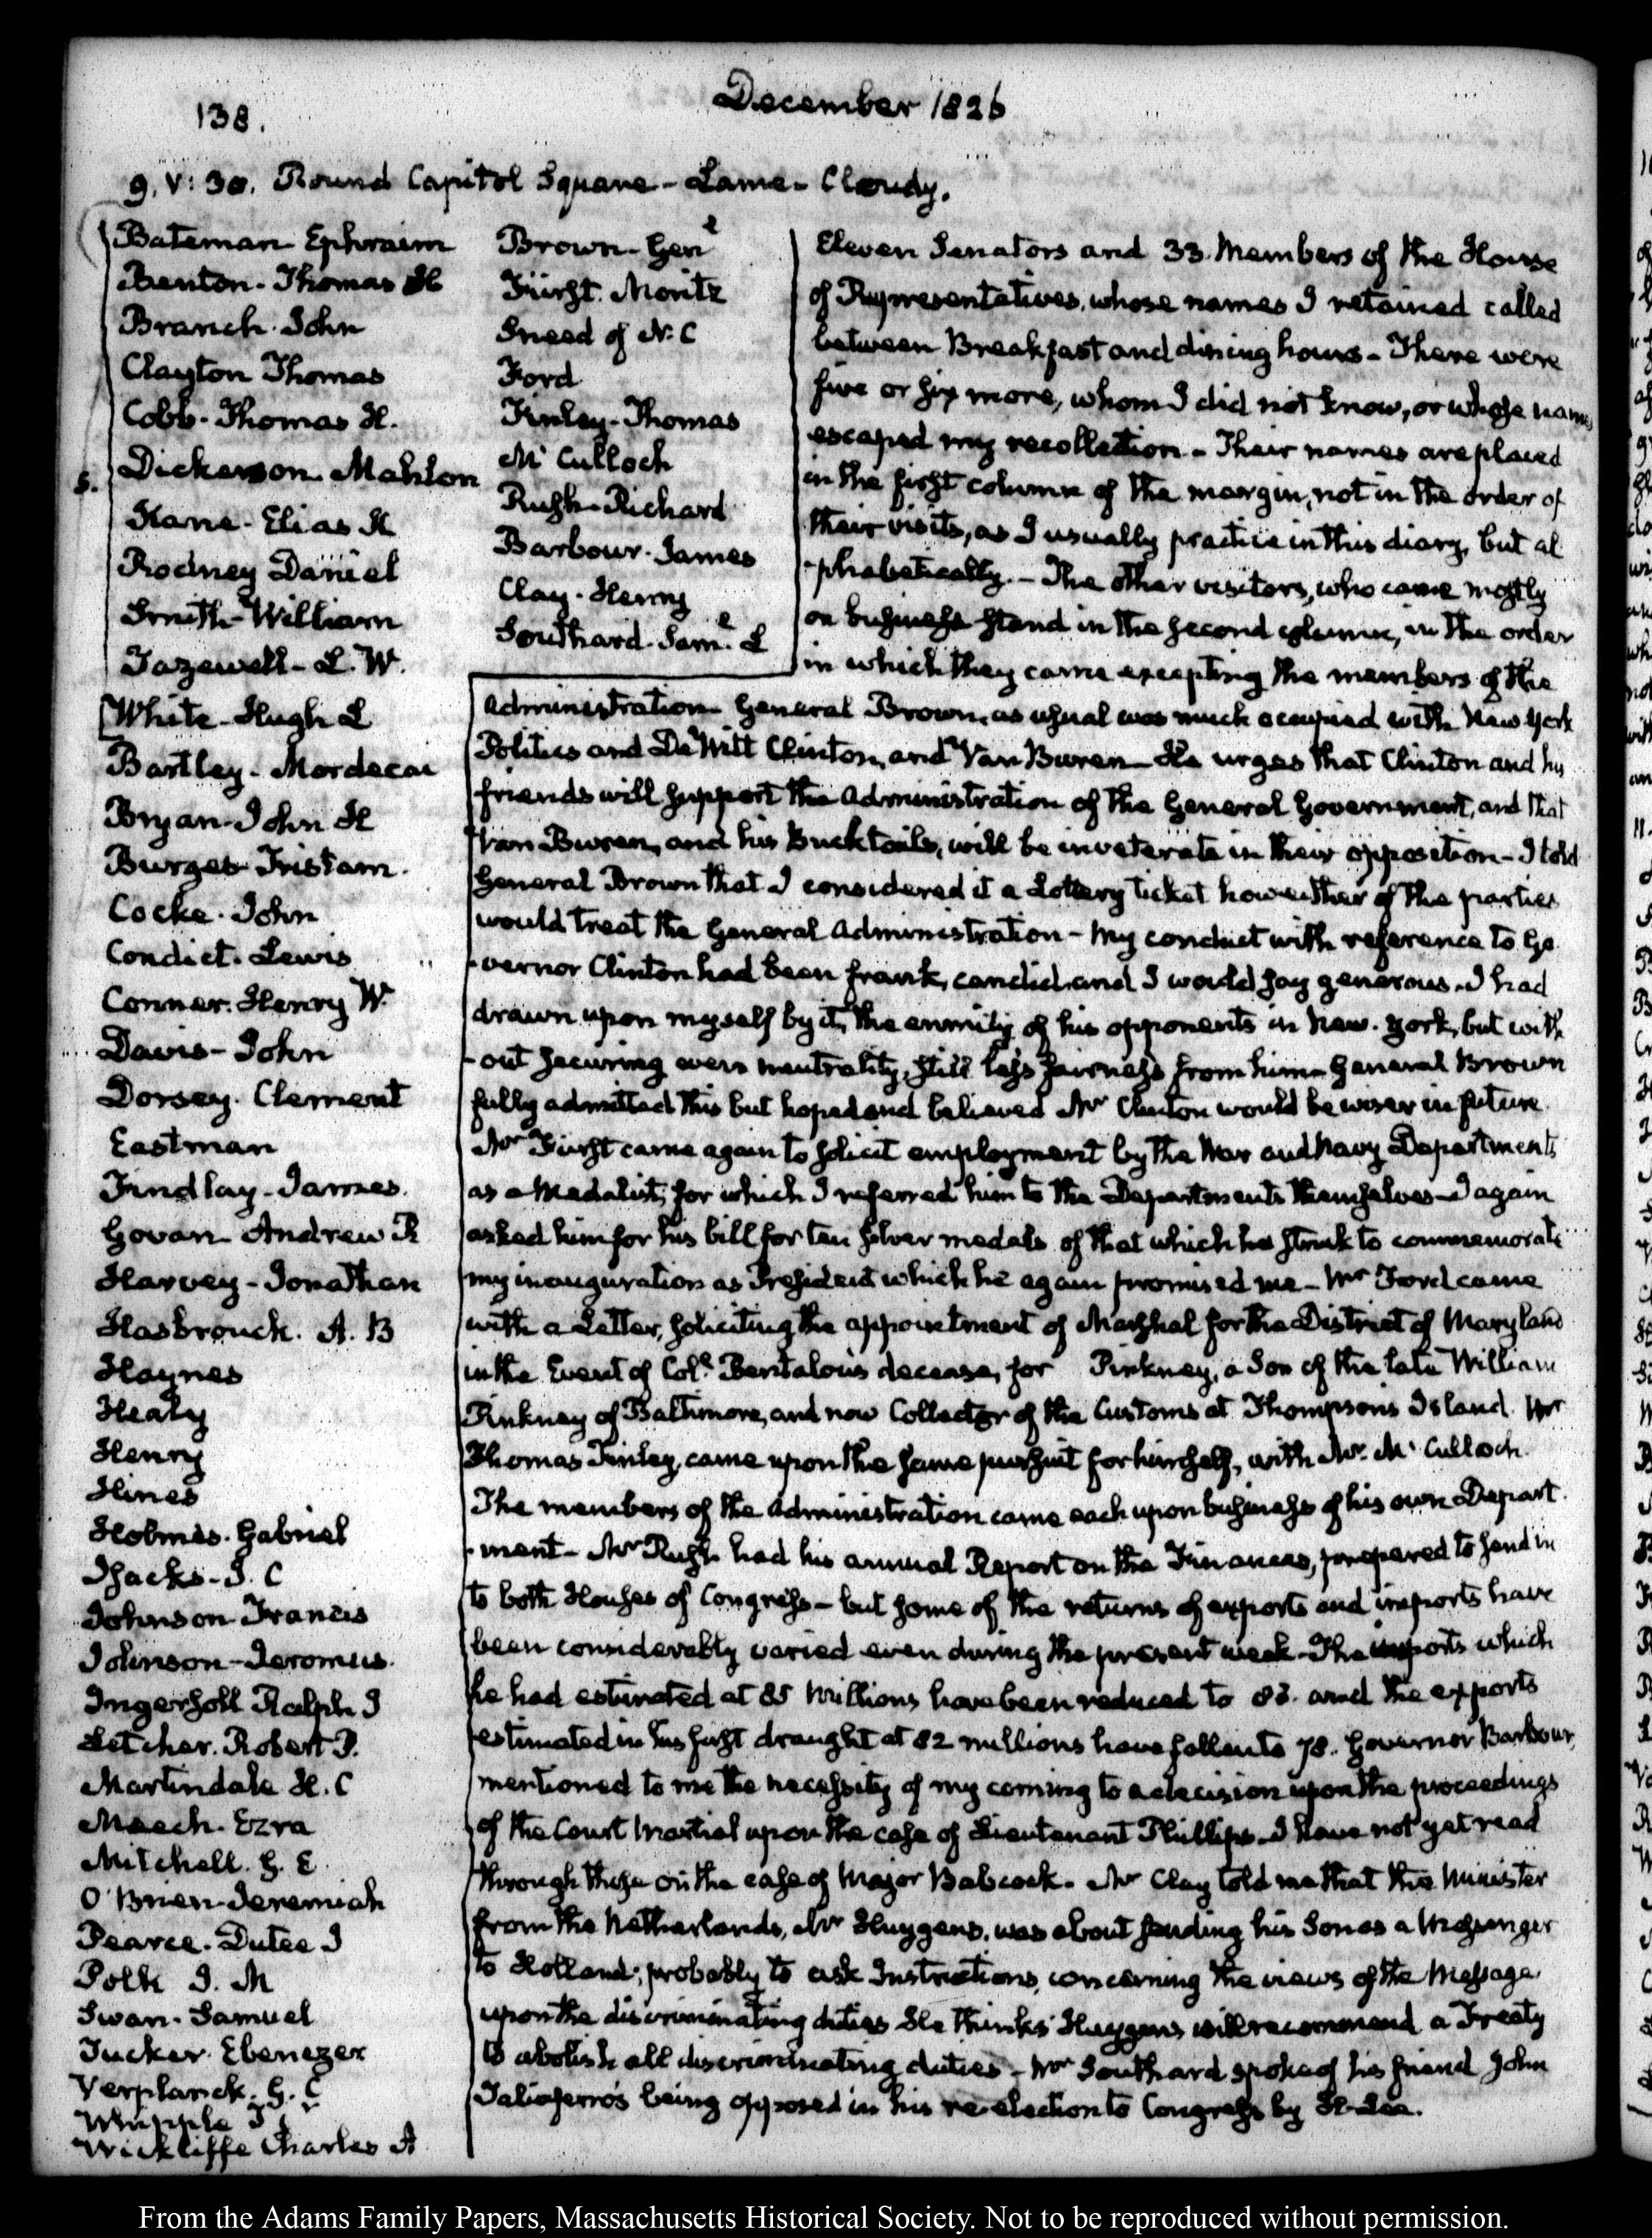 138.
December 1826
9. V: 30. Round Capitol Square - Lame - Cloudy.
Bateman Ephraim
Benton - Thomas H
Branch John
Clayton Thomas
Cobb - Thomas W.
S. Dickerson Mahlon
Kane - Elias K
Rodney Daniel
Smith - William
Tazewell - L. W.
White - Hugh L
Bartley - Mordecai
Bryan - John H
Burges Tristam.
Cocke. John
Condict. Lewis
Conner. Henry W.
Davis - John
Dorsey. Clement
Eastman
Findlay - James.
Govan Andrew R
Harvey - Jonathan
Hasbrouck. A. B
Haynes
Healy
Henry
Hines
Holmes. Gabriel
Isacks - J. C
Johnson Francis
Johnson - Jeromus.
Ingersoll Ralph I
Letcher. Robert P.
Martindale H. C
Meech. Ezra
Mitchell. G. E.
O'Brien Jeremiah
Pearce. Dutee J
Polk J. K
Swan - Samuel
Tucker Ebenezer
Verplanck. G. C
Whipple T
Wickliffe Charles A
Brown - Genl
Fürst. Moritz
Sneed of N. C
Ford
Finley - Thomas
McCulloch
Rush - Richard
Barbour - James
Clay - Henry
Southard Saml. L
Eleven Senators and 33. Members of the House
of Representatives, whose names I retained called
between Breakfast and dining hours - There were
five or six more, whom I did not know, or whose names
escaped my recollection - Their names are placed
in the first column of the margin, not in the order of
their visits, as I usually practice in this diary, but al
-phabetically. - The other visitors, who came mostly
on business stand in the second column, in the order
in which they came excepting the members of the
Administration General Brown, as usual was much occupied with New York
Politics and De Witt Clinton, and Van Buren - He urges that Clinton and his
friends will support the Administration of the General Government, and that
Van Buren, and his Bucktails, will be inveterate in their opposition - I told
General Brown that I considered it a Lottery ticket how either of the parties
would treat the General Administration - My conduct with reference to Go
-vernor Clinton had been frank, candid, and I would say generous. I had
drawn upon myself by it, the enmity of his opponents in New-York, but with
-out securing even neutrality, still less fairness from him - General Brown
fully admitted this but hoped and believed Mr Clinton would be wiser in future.
Mr Fürst came again to solicit employment by the War and Navy Departments
as a Medalist; for which I referred him to the Departments themselves - I again
asked him for his bill for ten silver medals of that which he struck to commemorate
my inauguration as President which he again promised me - Mr Ford came
with a Letter, soliciting the appointment of Marshal for the District of Maryland
in the Event of Col. Bentalou's decease, for Pinkney, a Son of the late William
Pinkney of Baltimore, and now Collector of the Customs at Thompsons Island. Mr
Thomas Finley, came upon the same pursuit for himself, with Mr. McCulloch.
The members of the Administration came each upon business of his own Depart
-ment - Mr Rush had his annual Report on the Finances, prepared to send in
to both Houses of Congress - but some of the returns of exports and imports have
been considerably varied even during the present week - The imports which
he had estimated at 85 Millions have been reduced to 83. and the exports
estimated in his first draught at 82 millions have fallen to 78. Governor Barbour,
mentioned to me the necessity of my coming to a decision upon the proceedings
of the Court Martial upon the case of Lieutenant Phillips. I have not yet read
through those on the case of Major Babcock - Mr Clay told me that the Minister
from the Netherlands, Mr Huygens, was about sending his Son as a Messenger
to Holland; probably to ask Instructions, concerning the views of the Message
upon the discriminating duties He thinks Huygens will recommend a Treaty
to abolish all discriminating duties - Mr Southard spoke of his friend John
Taliaferro's being opposed in his re-election to Congress by H. Lee.
From the Adams Family Papers, Massachusetts Historical Society. Not to be reproduced without permission.